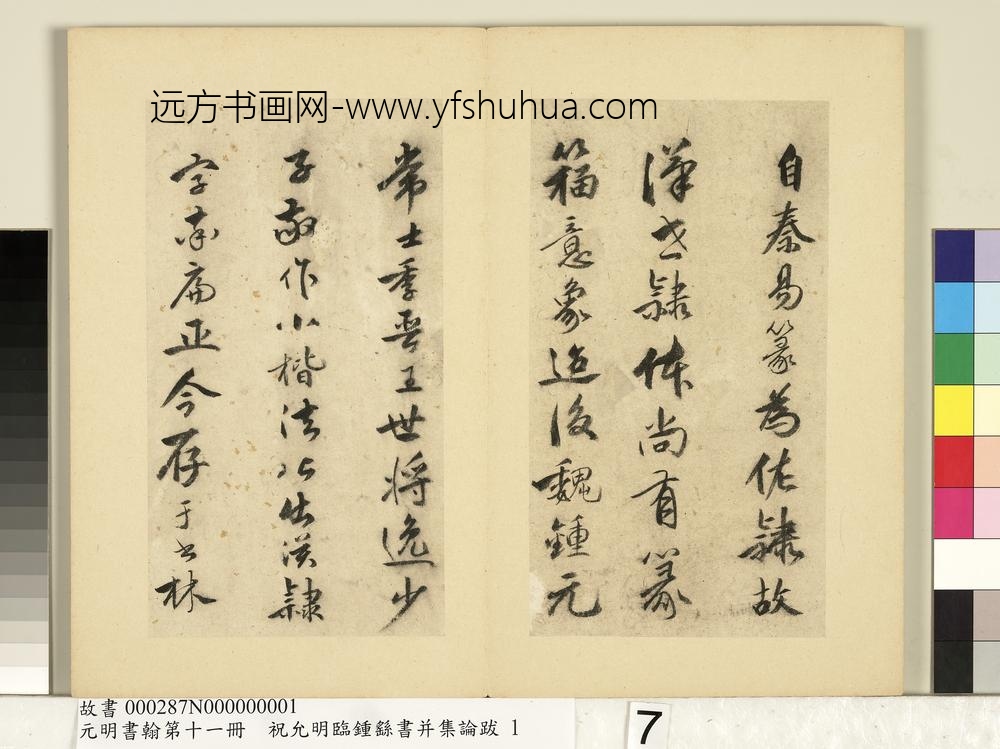 远方书画网-www.yfshuhua.com
自秦易篆為佐隸故
漢世隸体尚有篆
籀意象迨後魏鍾元
常士季晉王世將逸少
子敬作小楷法皆出漢隸
字率扁正今存于書林
故書 000287N000000001
元明書翰第十一冊 祝允明臨鍾繇書并集論跋 1
7